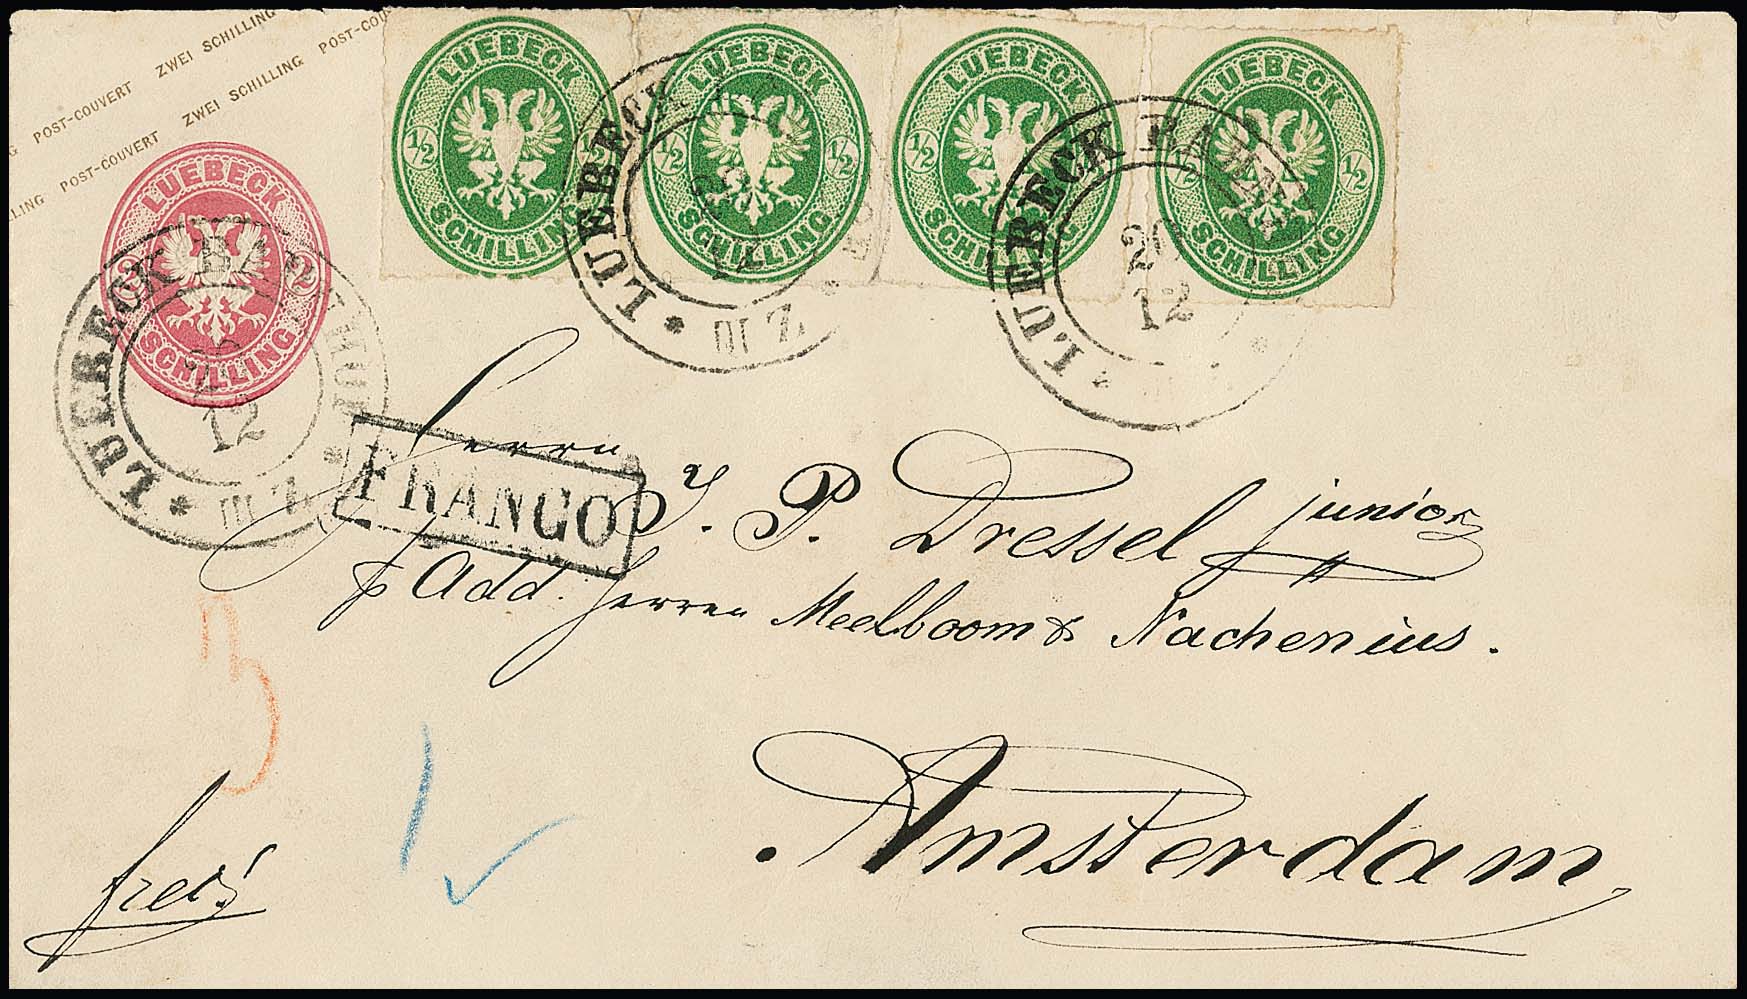 POST-COUVERT ZWEI SCHILLING POST-COU
POST-COUVERT ZWEI SCHILLING POST-COUVERT
LING POST-COUVERT ZWEI SCHILLING
LUEBECK
2 2
SCHILLING
LUEBECK
1/2 1/2
SCHILLING
LUEBECK
1/2 1/2
SCHILLING
LUEBECK
1/2 1/2
SCHILLING
LUEBECK
1/2 1/2
SCHILLING
LUEBECK BAHNHOF
12
* III Z. *
LUEBECK
* III Z. *
LUEBECK BAHNH
20
12
FRANCO
Herrn
J. P. Dressel junior
p Add. Herren Meelboom & Nachenius.
Amsterdam
frei!
3
1